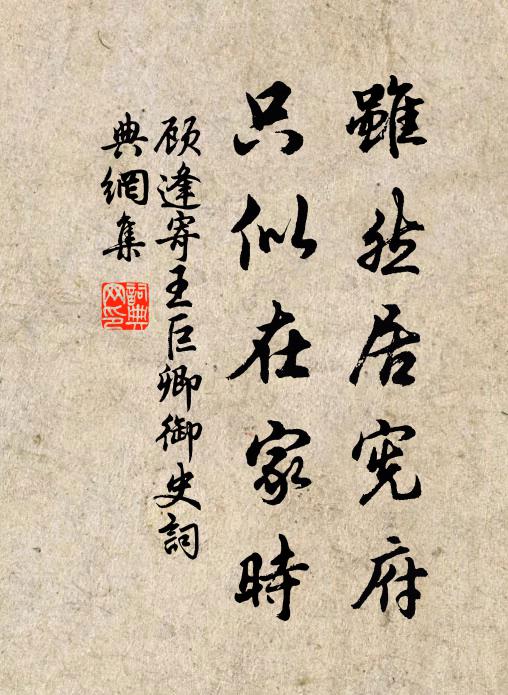 雖然居憲府
只似在家時
顾逢寄王巨卿御史詞
典網集
詞典网印